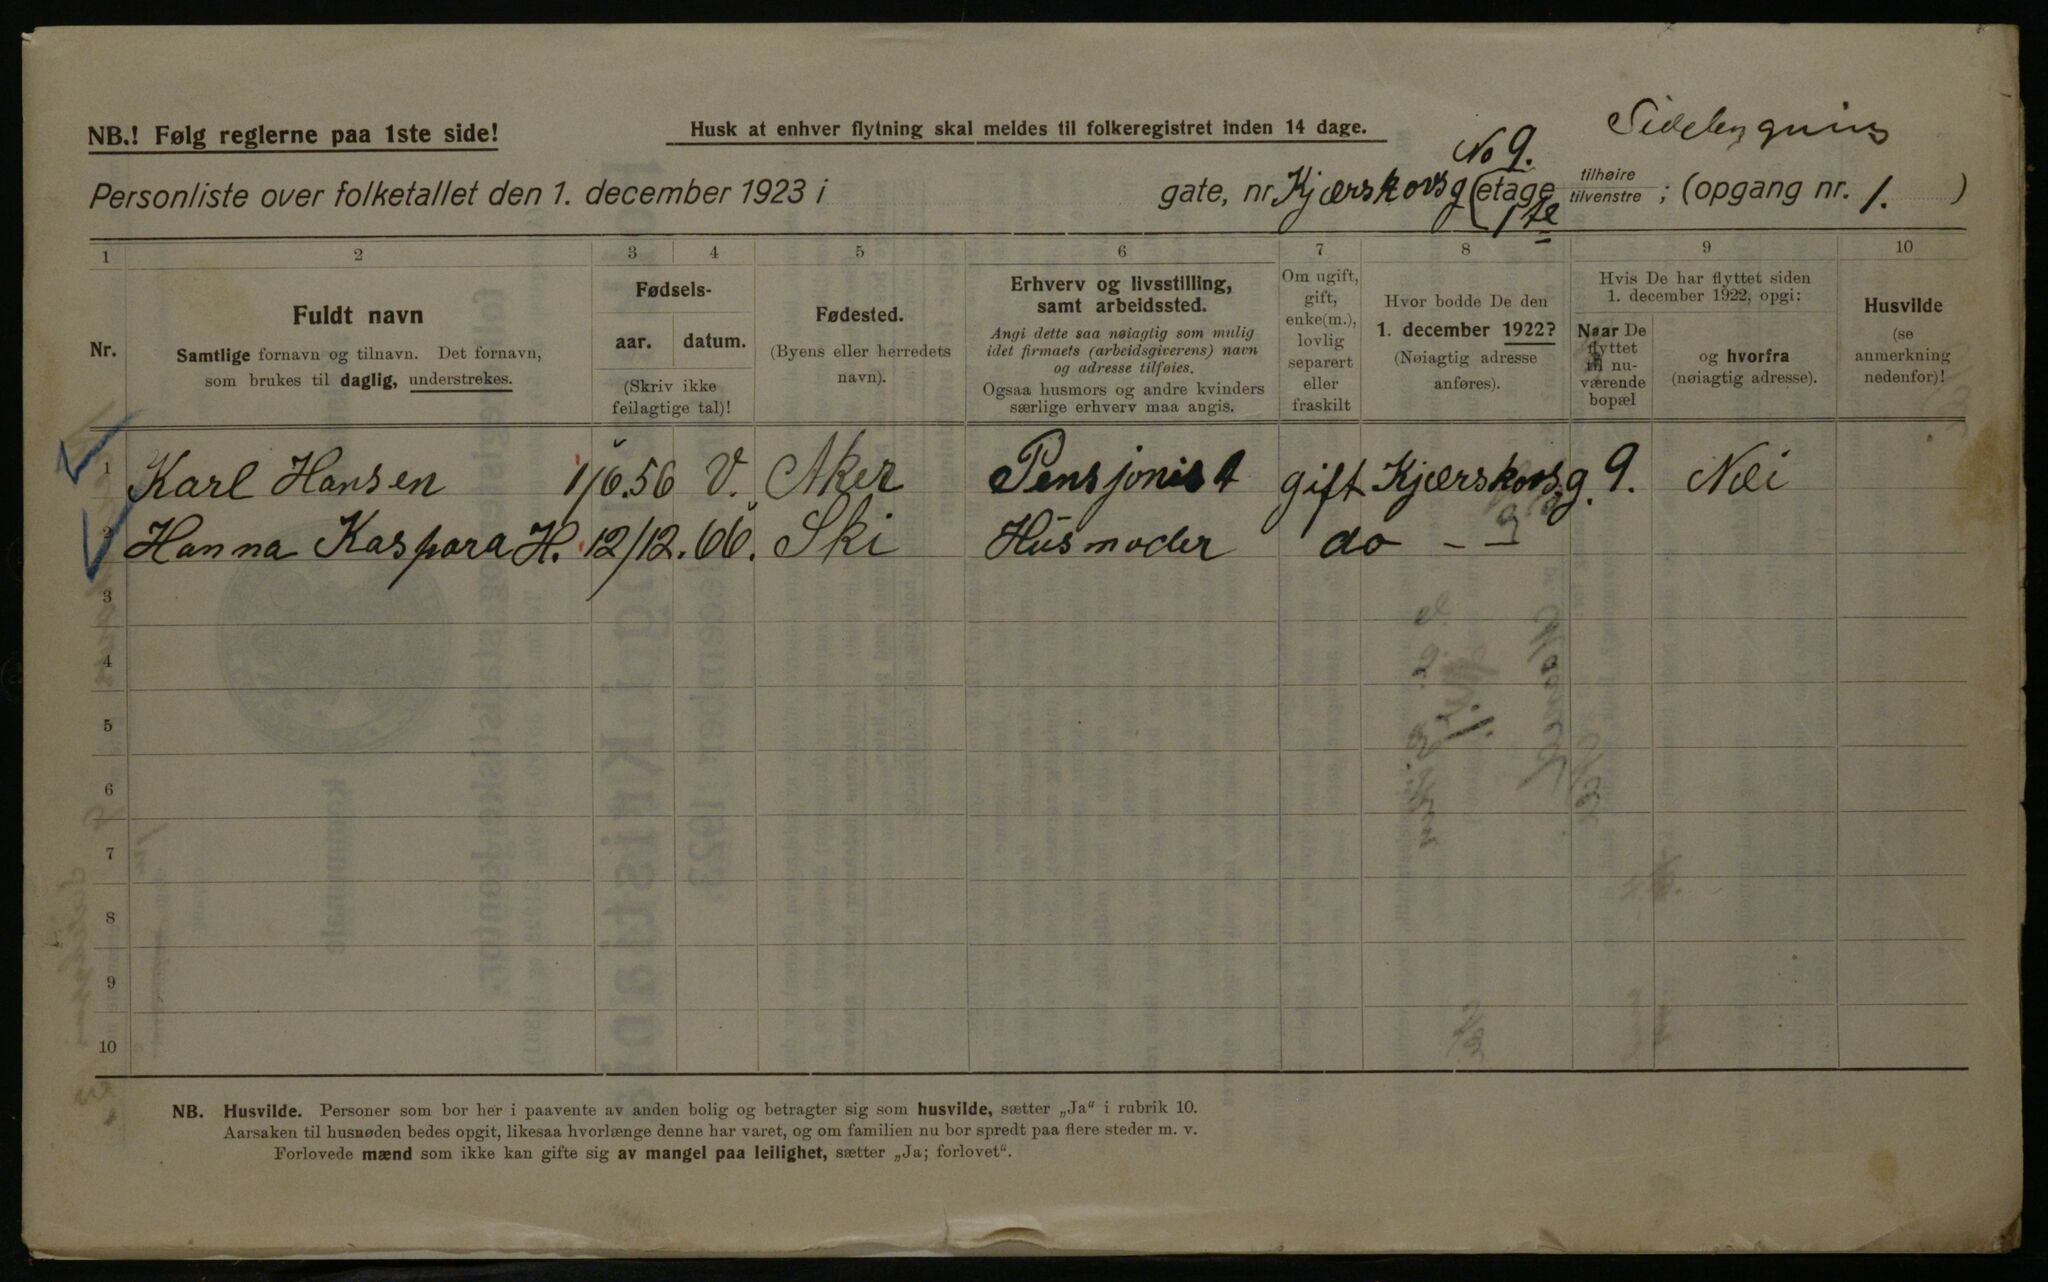 NB.! Følg reglerne paa 1ste side!
Husk at enhver flytning skal meldes til folkeregistret inden 14 dage.
No 9.
Personliste over folketallet den 1. december 1923 i gate, nr. Kjærskovsg (etage 1ste tilhøire tilvenstre ; (opgang nr. 1. )
1 2 3 4 5 6 7 8 9 10
Nr.
Fuldt navn
Samtlige fornavn og tilnavn. Det fornavn,
som brukes til daglig, understrekes.
Fødsels-
aar. datum.
(Skriv ikke
feilagtige tal)!
Fødested.
(Byens eller herredets
navn).
Erhverv og livsstilling,
samt arbeidssted.
Angi dette saa nøiagtig som mulig
idet firmaets (arbeidsgiverens) navn
og adresse tilføies.
Ogsaa husmors og andre kvinders
særlige erhverv maa angis.
Om ugift,
gift,
enke(m.),
lovlig
separert
eller
fraskilt
Hvor bodde De den
1. december 1922?
(Nøiagtig adresse
anføres).
Hvis De har flyttet siden
1. december 1922, opgi:
Naar De
flyttet
til nu-
værende
bopæl
og hvorfra
(nøiagtig adresse).
Husvilde
(se
anmerkning
nedenfor)!
1 Karl Hansen 1/6.56 V. Aker Pensjonist gift Kjærskovsg. 9. Nei
2 Hanna Kaspara H. 12/12.66. Ski Husmoder do - 9
3
4
5
6
7
8
9
10
NB. Husvilde. Personer som bor her i paavente av anden bolig og betragter sig som husvilde, sætter „Ja“ i rubrik 10.
Aarsaken til husnøden bedes opgit, likesaa hvorlænge denne har varet, og om familien nu bor spredt paa flere steder m. v.
Forlovede mænd som ikke kan gifte sig av mangel paa leilighet, sætter „Ja; forlovet“.